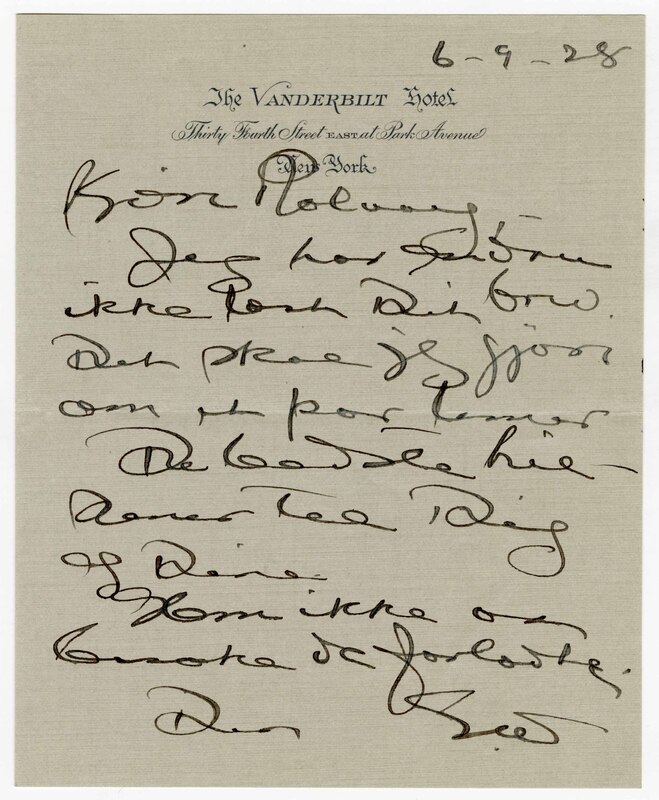 6-9-28
The VANDERBILT Hotel
Thirty Fourth Street EAST at Park Avenue
New York
Kjöre Rolvaag,
Jeg har endnu
ikke læst Dit brev.
Det skal jeg gjöre
om et par timer
De bedste hil-
sener til Dig
og Dine.
Glem ikke os
besøke de forlovte.
Din